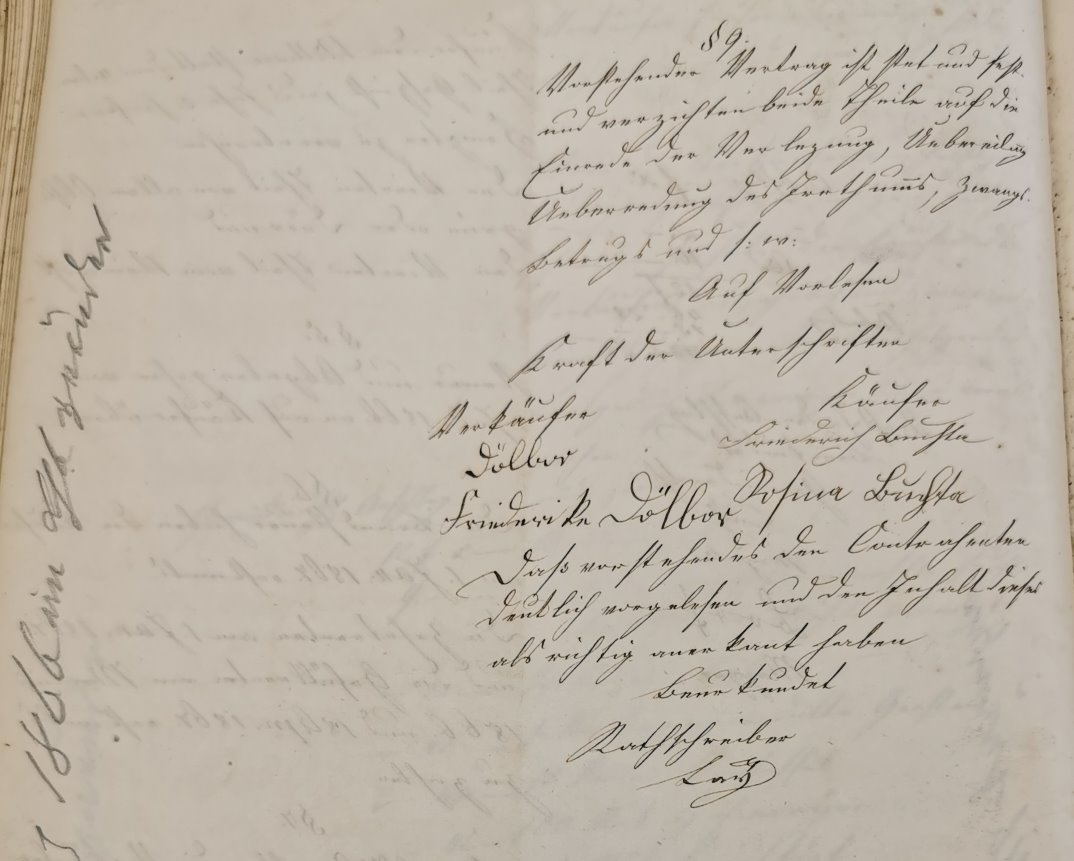 § 9.
Vorstehender Vertrag ist stet und fest.
und verzichten beide Theile auf die
Einrede der Verlezung, Uebereilung
Ueberredung des Irrthums, Zwangs.
Betrugs und s: w:
Auf Vorlesen
Kraft der Unterschriften
Verkäufer Käufer
Dölbor Friederich Buchta
Friederike Dölbor Rosina Buchta
Daß vorstehendes den Contrahenten
deutlich vorgelesen und den Inhalt dieses
als richtig anerkant haben
Beurkundet
Rathschreiber
1866